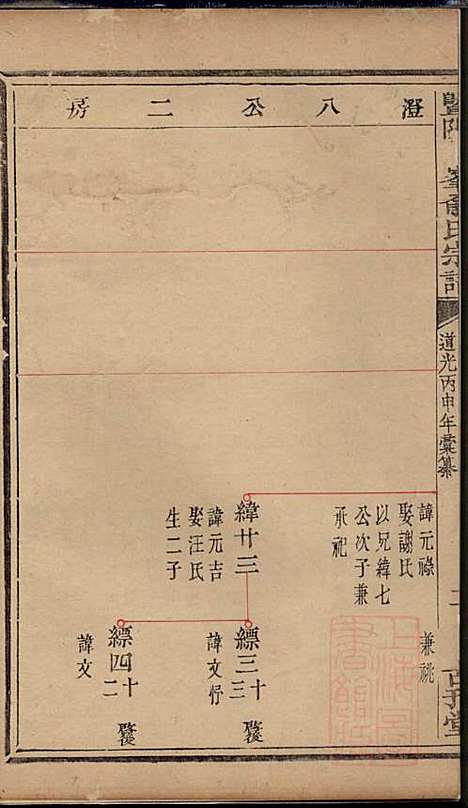 澄八公二房
暨陽
峯俞氏宗譜
道光丙申年彙纂
諱元祿
娶謝氏
以兄緯七
公次子兼
承祀
兼祧
緯廿三
諱元吉
娶汪氏
生二子
縹三十三
諱文
縹四十二
諱文